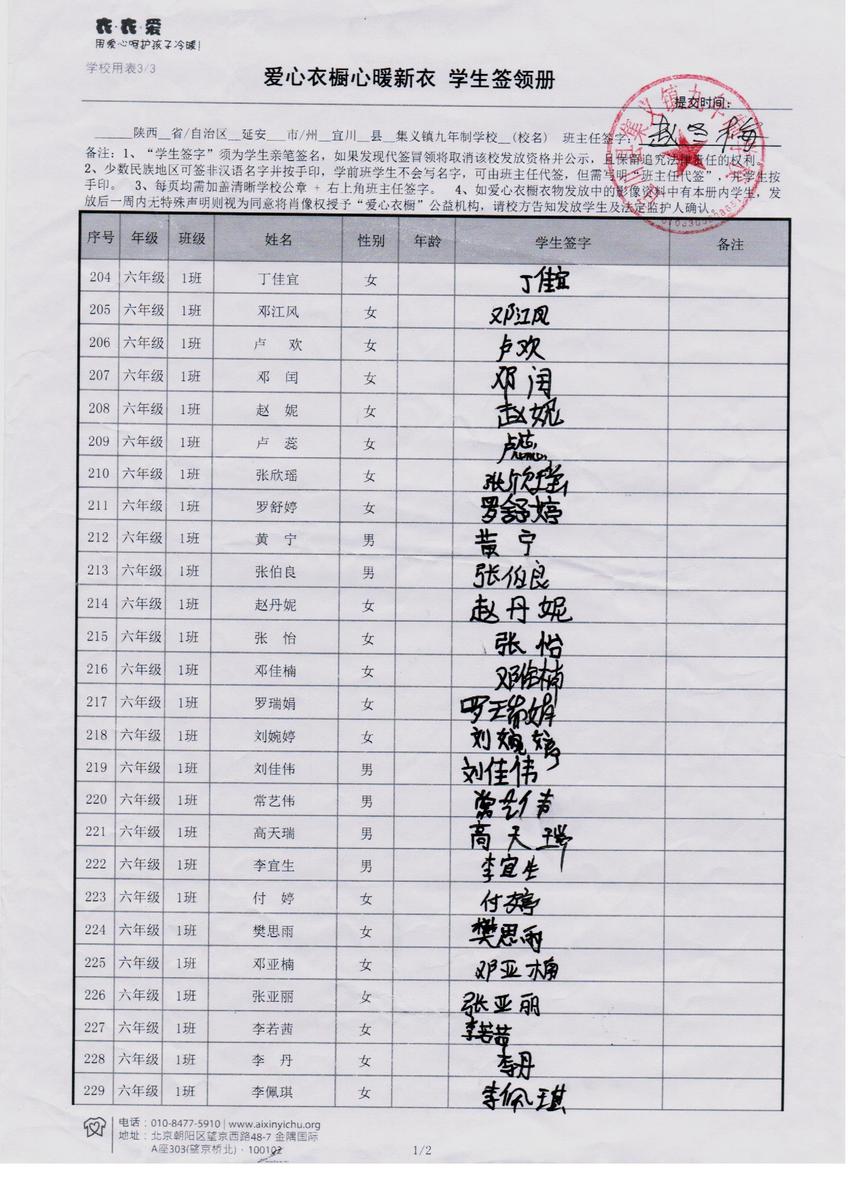 衣·衣·爱
用爱心呵护孩子冷暖!
学校用表3/3
爱心衣橱心暖新衣 学生签领册
提交时间:
______陕西__省/自治区__延安___市/州__宜川__县__集义镇九年制学校__(校名) 班主任签字: 赵冬梅
备注:1、“学生签字”须为学生亲笔签名,如果发现代签冒领将取消该校发放资格并公示,且保留追究法律责任的权利。
2、少数民族地区可签非汉语名字并按手印,学前班学生不会写名字,可由班主任代签,但需写明“班主任代签”,无学生按
手印。 3、每页均需加盖清晰学校公章 + 右上角班主任签字。 4、如爱心衣橱衣物发放中的影像资料中有本册内学生,发
放后一周内无特殊声明则视为同意将肖像权授予“爱心衣橱”公益机构,请校方告知发放学生及法定监护人确认。
序号 年级 班级 姓名 性别 年龄 学生签字 备注
204 六年级 1班 丁佳宜 女 丁佳宜
205 六年级 1班 邓江风 女 邓江风
206 六年级 1班 卢 欢 女 卢欢
207 六年级 1班 邓 闰 女 邓闰
208 六年级 1班 赵 妮 女 赵妮
209 六年级 1班 卢 蕊 女 卢蕊
210 六年级 1班 张欣瑶 女 张欣瑶
211 六年级 1班 罗舒婷 女 罗舒婷
212 六年级 1班 黄 宁 男 黄宁
213 六年级 1班 张伯良 男 张伯良
214 六年级 1班 赵丹妮 女 赵丹妮
215 六年级 1班 张 怡 女 张怡
216 六年级 1班 邓佳楠 女 邓佳楠
217 六年级 1班 罗瑞娟 女 罗瑞娟
218 六年级 1班 刘婉婷 女 刘婉婷
219 六年级 1班 刘佳伟 男 刘佳伟
220 六年级 1班 常艺伟 男 常艺伟
221 六年级 1班 高天瑞 男 高天瑞
222 六年级 1班 李宜生 男 李宜生
223 六年级 1班 付 婷 女 付婷
224 六年级 1班 樊思雨 女 樊思雨
225 六年级 1班 邓亚楠 女 邓亚楠
226 六年级 1班 张亚丽 女 张亚丽
227 六年级 1班 李若茜 女 李若茜
228 六年级 1班 李 丹 女 李丹
229 六年级 1班 李佩琪 女 李佩琪
电话:010-8477-5910 | www.aixinyichu.org
地址:北京朝阳区望京西路48-7 金隅国际
A座303(望京桥北)·100102
1/2